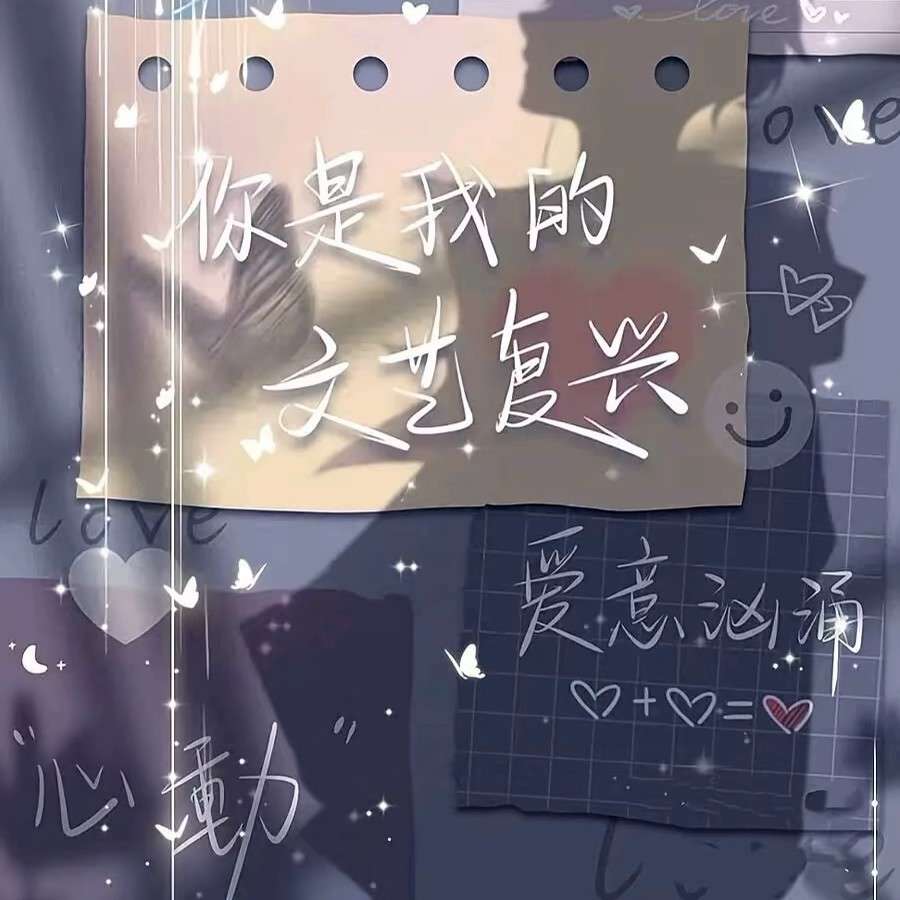 love
ove
你是我的
文艺复兴
love
爱意汹涌
+ =
"心動"